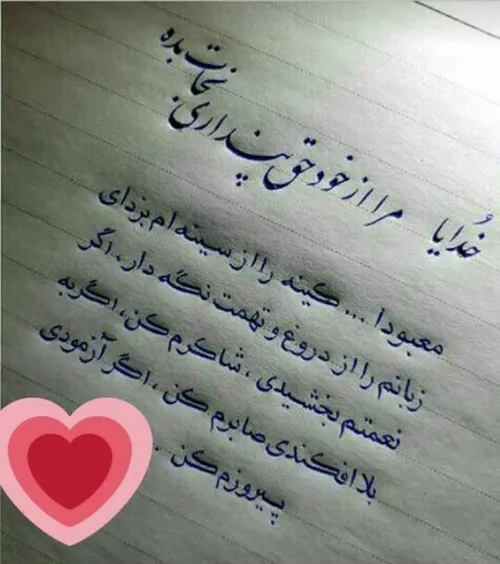 خُدایا مرا از خود حق پنداری نجات بده
معبودا ... کینه را از سینه ام بزدای
زبانم را از دروغ و تهمت نگه دار ، اگر
نعمتم بخشیدی ، شاکرم کن ، اگر به
بلا افکندی صابرم کن ، اگر آزمودی
پیروزم کن ..